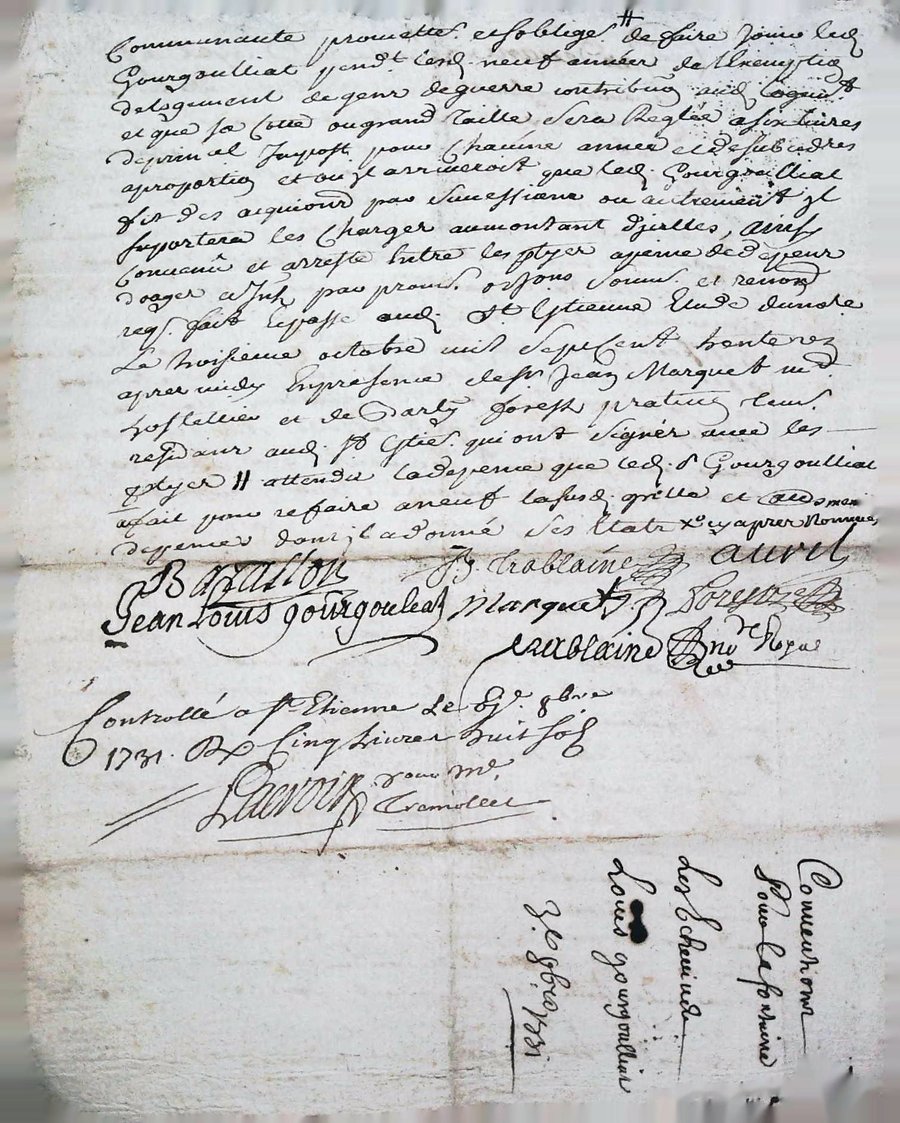 Communauté promettes et sobliges de faire jouir led
Gourgoulliat pend.t lesd. neuf année de Lexemption
de logement de gens de guerre contribuon aud.
et que sa Cotte ou grand Taille sera Reglée a six livres
de prin.el Impost pour Chacune année et de subcides
aproportion et ou Jl arriveroit que led. Gourgoulliat
fit des aquions par sucession ou autrement Jl
suportera les Charges au montant d'jcelles, ainsy
Convenu et arresté Entre les ptyes apeine de depens
doages et Jnts par prom. obons soumi. et renon
req. fait et passé aud. St Etienne Etude du nore
Le troisieme octobre mil sept Cent trente et un
apres midy En presence de sr Jean Marquet md
hostellier et de Forest pratitien
residans aud. St Esties. qui ont signés avec les
ptyes // attendu la depence que led. s Gourgoulliat
a fait pour refaire a neuf lasusd. et
depences dont jl a donné ses Etats cy apres
Barallon B. Trablaine avril
Jean Louis gourgouliat Marquet Forest
Trablaine no.re Royal
Controllé a st Etienne Le 8bre
1731. Rx Cinq Livres huit sols
Lacroix pour mr.
Tremollet
Conventions
Pour la fontaine
Les Echevins de
Louis gourgoulliat
3.e 8bre 1731